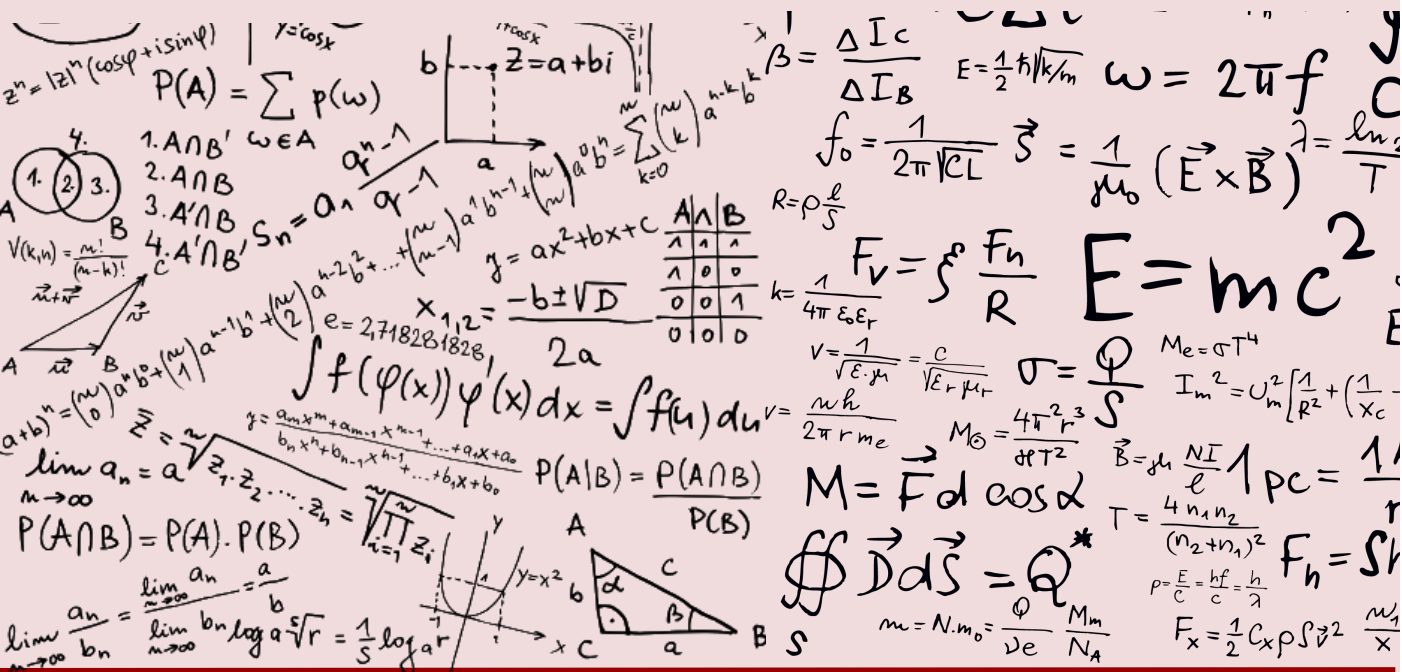 zⁿ = |z|ⁿ (cosφ + i sinφ)
y = cosx
P(A) = ∑ p(ω)
ω∈A
b
z = a + bi
a
4.
1. 2. 3.
A
B
1. A∩B'
2. A∩B
3. A'∩B
4. A'∩B'
Sₙ = a₁ (qⁿ - 1)/(q - 1)
V(k,n) = n!/(n-k)!
C
u⃗+v⃗
v⃗
A
u⃗
B
(a+b)ⁿ = (n 0) aⁿb⁰ + (n 1) aⁿ⁻¹b¹ + (n 2) aⁿ⁻²b² + ... + (n n-1) a¹bⁿ⁻¹ + (n n) a⁰bⁿ = ∑ₖ₌₀ⁿ (n k) aⁿ⁻ᵏbᵏ
y = ax² + bx + c
A ∧ B
1 1 1
1 0 0
0 0 1
0 0 0
x₁,₂ = (-b ± √D)/2a
e = 2,718281828
∫f(φ(x))φ'(x)dx = ∫f(u)du
y = (aₘxᵐ + aₘ₋₁xᵐ⁻¹ + ... + a₁x + a₀)/(bₙxⁿ + bₙ₋₁xⁿ⁻¹ + ... + b₁x + b₀)
lim aₙ = a
n→∞
z̄ = ⁿ√(z₁·z₂·...·zₙ) = ⁿ√(∏ᵢ₌₁ⁿ zᵢ)
P(A|B) = P(A∩B)/P(B)
P(A∩B) = P(A).P(B)
lim n→∞ aₙ/bₙ = (lim n→∞ aₙ)/(lim n→∞ bₙ) = a/b
logₐ ˢ√r = 1/s logₐ r
y
y=x²
-1 1
1
x
A
b
α
c
C
β
a
B
β = ΔIc/ΔI_B
E = 1/2 ħ√(k/m)
ω = 2πf
f₀ = 1/(2π√CL)
S⃗ = 1/μ₀ (E⃗ × B⃗)
λ = ln 2/T
R = ρ l/S
F_v = ξ Fₙ/R
E = mc²
k = 1/(4π ε₀εᵣ)
v = 1/√(ε·μ) = c/√(εᵣμᵣ)
σ = Q/S
Mₑ = σT⁴
Iₘ² = Uₘ² [1/R² + (1/X_C -
v = nh/(2π r mₑ)
M☉ = 4π²r³/(ϰT²)
B⃗ = μ NI/l
1 pc =
M = F⃗d cosα
T = 4 n₁n₂/(n₂+n₁)²
∯ D⃗dS⃗ = Q*
S
p = E/c = hf/c = h/λ
Fₕ = Sh
m = N.m₀ = Q/(νe) Mₘ/N_A
Fₓ = 1/2 Cₓ ρ S v⃗²